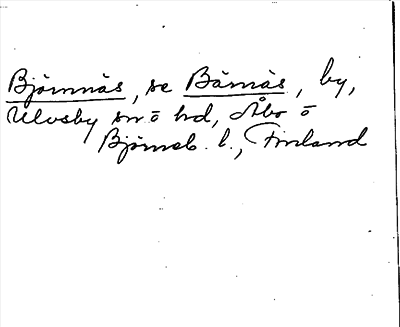 Björnnäs, se Bärnäs, by,
Ulvsby sn o hd, Åbo o
Björneb. l., Finland